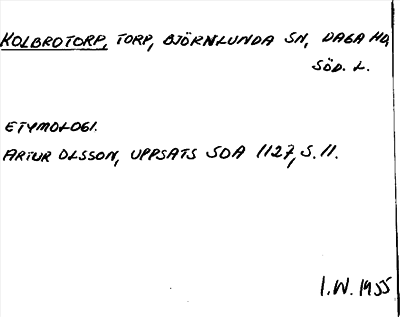 KOLBROTORP, TORP, BJÖRNLUNDA SN, DAGA HD,
SÖD. L.
ETYMOLOGI.
ARTUR OLSSON, UPPSATS SOA 1127, S. 11.
I.W. 1955